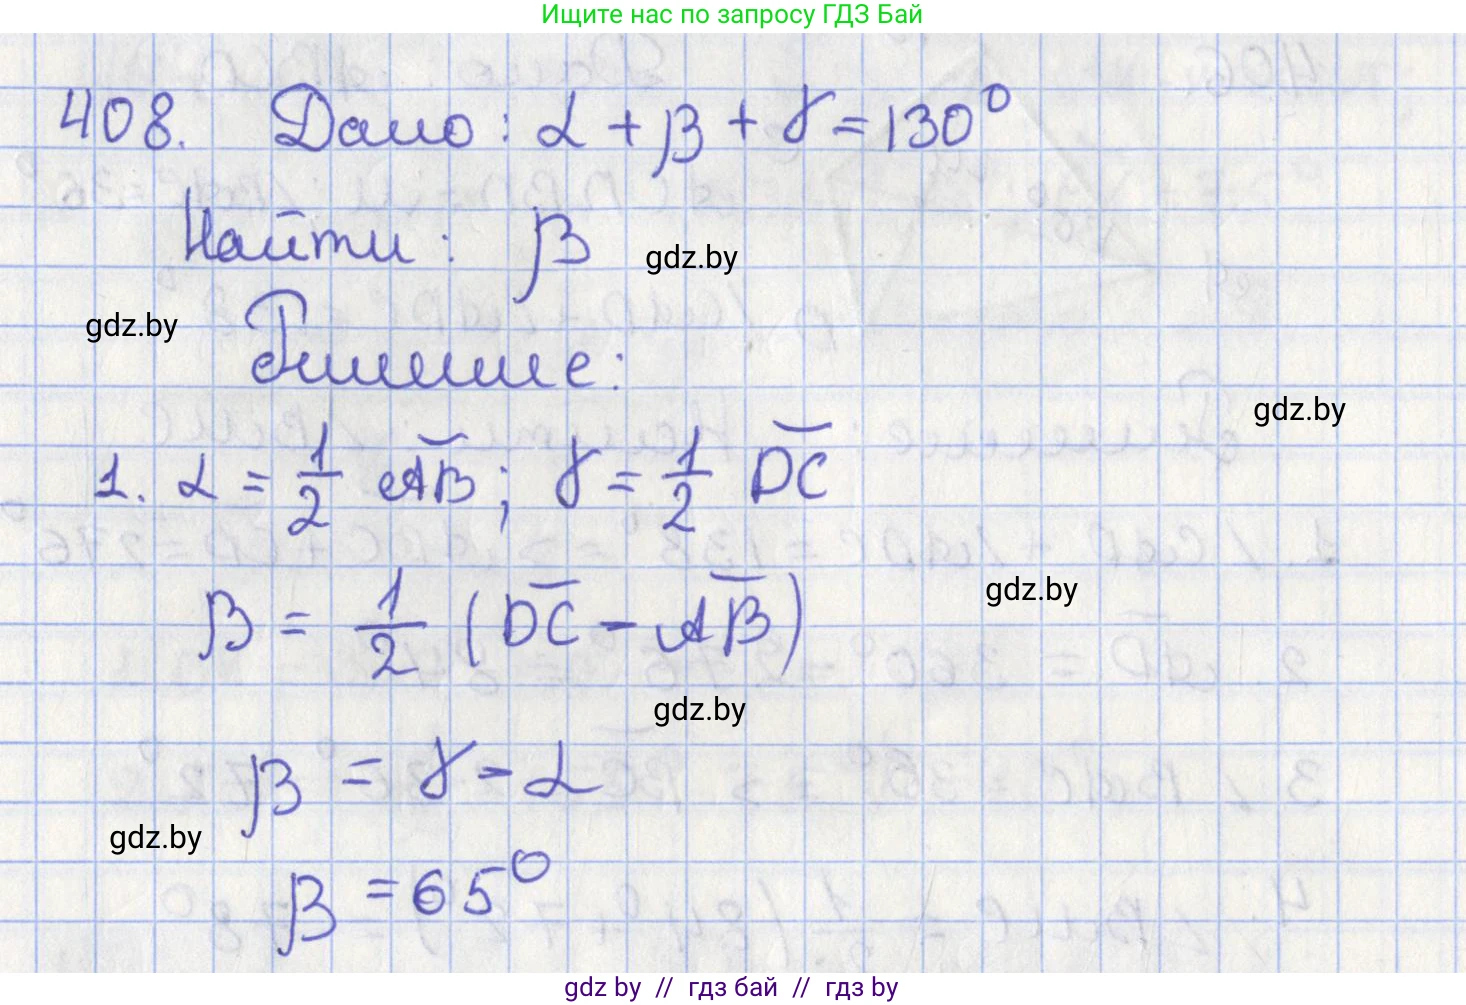 Ищите нас по запросу ГДЗ Бай
408. Дано: α + β + γ = 130°
Найти: β
gdz.by
gdz.by
Решение:
gdz.by
1. α = 1/2 AB; γ = 1/2 DC
gdz.by
β = 1/2 (DC - AB)
gdz.by
β = γ - α
gdz.by
β = 65°
gdz by // гдз бай // гдз by